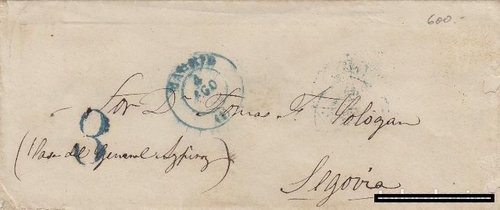 600.-
MADRID
4
AGO
Sor. Dn. Tomas F. Vologan
8
(Casa del General Azpiroz)
Segovia